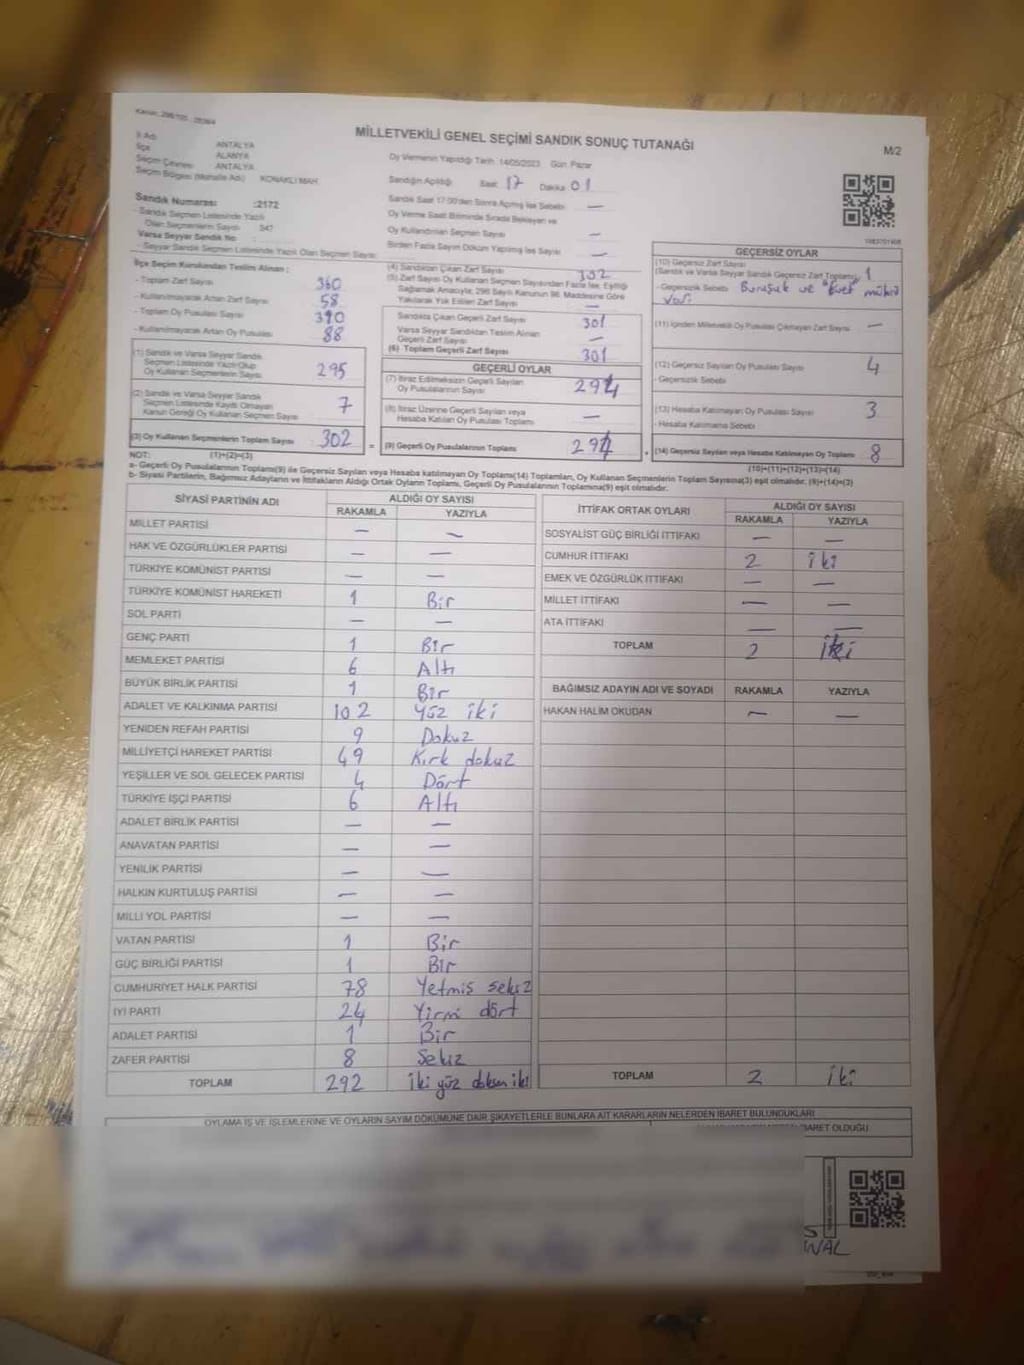 MİLLETVEKİLİ GENEL SEÇİMİ SANDIK SONUÇ TUTANAĞI
M/2
İl Adı ANTALYA
İlçe ALANYA
Seçim Çevresi ANTALYA
Seçim Bölgesi (Mahalle Adı) KONAKLI MAH
Sandık Numarası :2172
- Sandık Seçmen Listesinde Yazılı
Olan Seçmenlerin Sayısı 347
Varsa Seyyar Sandık No
- Seyyar Sandık Seçmen Listesinde Yazılı Olan Seçmen Sayısı
Oy Vermenin Yapıldığı Tarih 14/05/2023 Gün Pazar
Sandığın Açıldığı Saat 17 Dakika 01
Sandık Saat 17:00'den Sonra Açılmış İse Sebebi —
Oy Verme Saati Bitiminde Sırada Bekleyen ve
Oy Kullandırılan Seçmen Sayısı —
Birden Fazla Sayım Döküm Yapılmış İse Sayısı —
İlçe Seçim Kurulundan Teslim Alınan :
- Toplam Zarf Sayısı 360
- Kullanılmayarak Artan Zarf Sayısı 58
- Toplam Oy Pusulası Sayısı 390
- Kullanılmayarak Artan Oy Pusulası 88
(1) Sandık ve Varsa Seyyar Sandık
Seçmen Listesinde Yazılı Olup
Oy Kullanan Seçmenlerin Sayısı 295
(2) Sandık ve Varsa Seyyar Sandık
Seçmen Listesinde Kaydı Olmayan
Kanun Gereği Oy Kullanan Seçmen Sayısı 7
(3) Oy Kullanan Seçmenlerin Toplam Sayısı 302 =
(4) Sandıktan Çıkan Zarf Sayısı 302
(5) Zarf Sayısı Oy Kullanan Seçmen Sayısından Fazla İse, Eşitliği
Sağlamak Amacıyla, 298 Sayılı Kanunun 98. Maddesine Göre
Yakılarak Yok Edilen Zarf Sayısı —
Sandıkta Çıkan Geçerli Zarf Sayısı 301
Varsa Seyyar Sandıktan Teslim Alınan
Geçerli Zarf Sayısı —
(6) Toplam Geçerli Zarf Sayısı 301
GEÇERLİ OYLAR
(7) İtiraz Edilmeksizin Geçerli Sayılan
Oy Pusulalarının Sayısı 294
(8) İtiraz Üzerine Geçerli Sayılan veya
Hesaba Katılan Oy Pusulası Toplamı —
(9) Geçerli Oy Pusulalarının Toplamı 294 +
GEÇERSİZ OYLAR
(10) Geçersiz Zarf Sayısı
(Sandık ve Varsa Seyyar Sandık Geçersiz Zarf Toplamı) 1
- Geçersizlik Sebebi Buruşuk ve "Evet" mührü
var.
(11) İçinden Milletvekili Oy Pusulası Çıkmayan Zarf Sayısı —
(12) Geçersiz Sayılan Oy Pusulası Sayısı 4
- Geçersizlik Sebebi
(13) Hesaba Katılmayan Oy Pusulası Sayısı 3
- Hesaba Katılmama Sebebi
(14) Geçersiz Sayılan veya Hesaba Katılmayan Oy Toplamı 8
NOT: (1)+(2)=(3) (10)+(11)+(12)+(13)=(14)
a- Geçerli Oy Pusulalarının Toplamı(9) ile Geçersiz Sayılan veya Hesaba katılmayan Oy Toplamı(14) Toplamları, Oy Kullanan Seçmenlerin Toplam Sayısına(3) eşit olmalıdır. (9)+(14)=(3)
b- Siyasi Partilerin, Bağımsız Adayların ve İttifakların Aldığı Ortak Oyların Toplamı, Geçerli Oy Pusulalarının Toplamına(9) eşit olmalıdır.
SİYASİ PARTİNİN ADI ALDIĞI OY SAYISI
RAKAMLA YAZIYLA
MİLLET PARTİSİ — —
HAK VE ÖZGÜRLÜKLER PARTİSİ — —
TÜRKİYE KOMÜNİST PARTİSİ — —
TÜRKİYE KOMÜNİST HAREKETİ 1 Bir
SOL PARTİ — —
GENÇ PARTİ 1 Bir
MEMLEKET PARTİSİ 6 Altı
BÜYÜK BİRLİK PARTİSİ 1 Bir
ADALET VE KALKINMA PARTİSİ 102 Yüz iki
YENİDEN REFAH PARTİSİ 9 Dokuz
MİLLİYETÇİ HAREKET PARTİSİ 49 Kırk dokuz
YEŞİLLER VE SOL GELECEK PARTİSİ 4 Dört
TÜRKİYE İŞÇİ PARTİSİ 6 Altı
ADALET BİRLİK PARTİSİ — —
ANAVATAN PARTİSİ — —
YENİLİK PARTİSİ — —
HALKIN KURTULUŞ PARTİSİ — —
MİLLİ YOL PARTİSİ — —
VATAN PARTİSİ 1 Bir
GÜÇ BİRLİĞİ PARTİSİ 1 Bir
CUMHURİYET HALK PARTİSİ 78 Yetmiş sekiz
İYİ PARTİ 24 Yirmi dört
ADALET PARTİSİ 1 Bir
ZAFER PARTİSİ 8 Sekiz
TOPLAM 292 iki yüz doksan iki
İTTİFAK ORTAK OYLARI ALDIĞI OY SAYISI
RAKAMLA YAZIYLA
SOSYALİST GÜÇ BİRLİĞİ İTTİFAKI — —
CUMHUR İTTİFAKI 2 iki
EMEK VE ÖZGÜRLÜK İTTİFAKI — —
MİLLET İTTİFAKI — —
ATA İTTİFAKI — —
TOPLAM 2 iki
BAĞIMSIZ ADAYIN ADI VE SOYADI RAKAMLA YAZIYLA
HAKAN HALİM OKUDAN — —
TOPLAM 2 iki
OYLAMA İŞ VE İŞLEMLERİNE VE OYLARIN SAYIM DÖKÜMÜNE DAİR ŞİKAYETLERLE BUNLARA AİT KARARLARIN NELERDEN İBARET BULUNDUKLARI
İBARET OLDUĞU